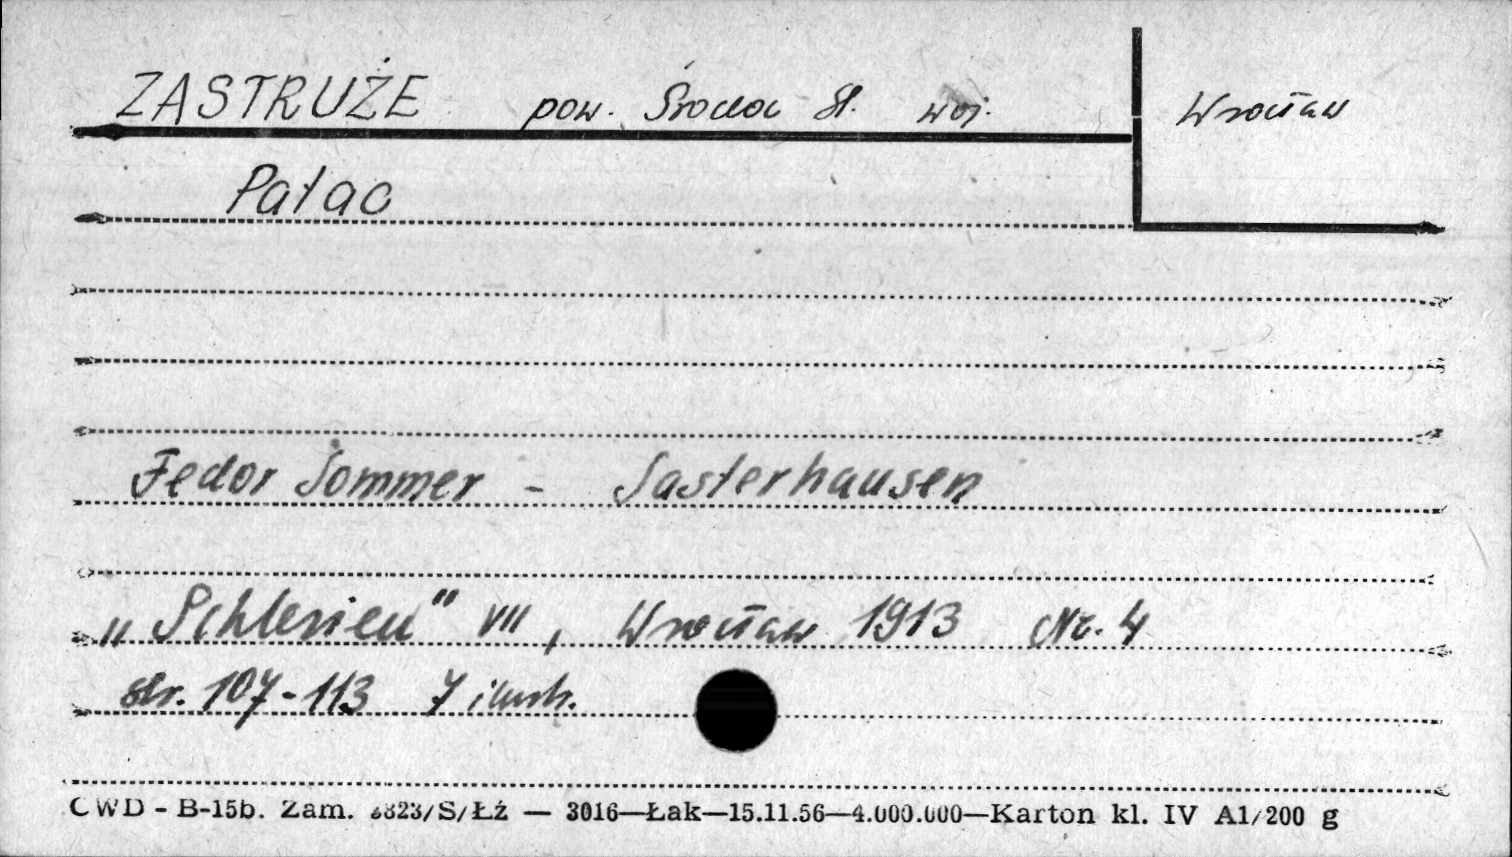 ZASTRUŻE pow. Środa Śl. woj. Wrocław
Pałac
Fedor Sommer - Sasterhausen
„Schlesien" VII, Wrocław 1913 Nr. 4
str. 107-113 7 ilustr.
CWD - B-15b. Zam. 2823/S/Łź — 3016—Łak—15.11.56—4.000.000—Karton kl. IV A1/200 g